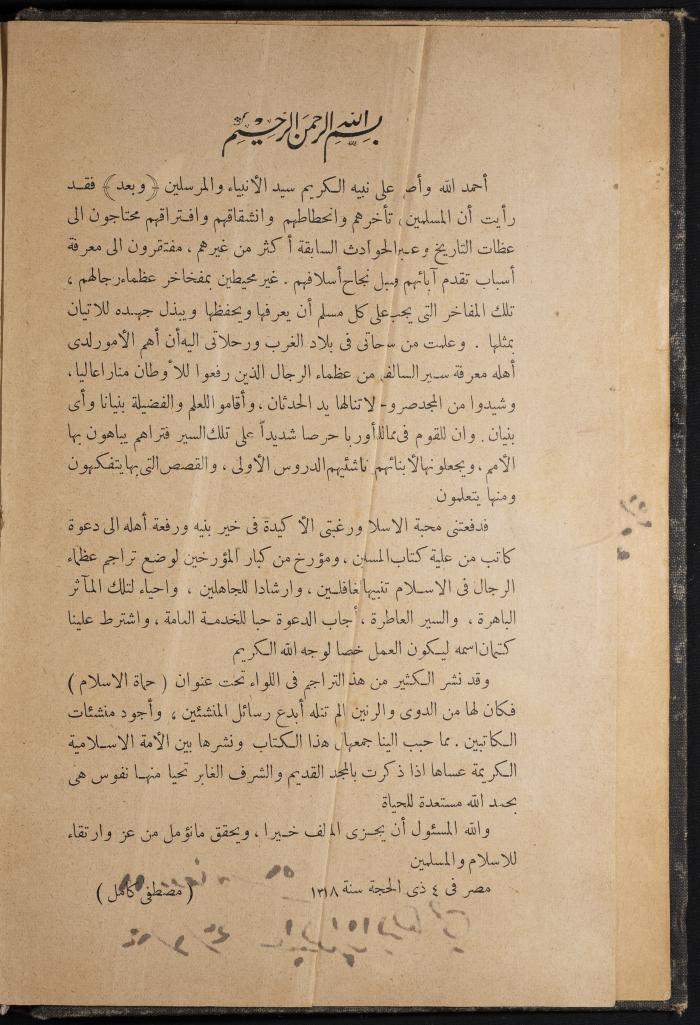 بسم الله الرحمن الرحيم
أحمد الله وأصـ على نبيه الكريم سيد الأنبياء والمرسلين (وبعد) فقد
رأيت أن المسلمين تأخرهم وانحطاطهم وانشقاقهم وافتراقهم محتاجون الى
عظات التاريخ وعبر الحوادث السابقة أكثر من غيرهم ، مفتقرون الى معرفة
أسباب تقدم آبائهم وسبل نجاح أسلافهم . غير محيطين بمفاخر عظماء رجالهم ،
تلك المفاخر التى يجب على كل مسلم أن يعرفها ويحفظها ويبذل جهده للاتيان
بمثلها . وعلمت من سياحاتى فى بلاد الغرب ورحلاتى اليه أن أهم الأمور لدى
أهله معرفة سير السالفـ من عظماء الرجال الذين رفعوا للأوطان منارا عاليا ،
وشيدوا من المجد صروـ لا تنالها يد الحدثان ، وأقاموا للعلم والفضيلة بنيانا وأى
بنيان . وان للقوم فى ممالك أوربا حرصا شديداً على تلك السير فتراهم يباهون بها
الأمم ، ويجعلونها لأبنائهم ناشئيهم الدروس الأولى ، والقصص التى بها يتفكهون
ومنها يتعلمون
فدفعتنى محبة الاسلا ورغبتى الأكيدة فى خير بنيه ورفعة أهله الى دعوة
كاتب من علية كتاب المسلمين ، ومؤرخ من كبار المؤرخين لوضع تراجم عظماء
الرجال فى الاسلام تنبيها لغافلين ، وارشادا للجاهلين ، واحياء لتلك المآثر
الباهرة ، والسير العاطرة ، أجاب الدعوة حبا للخدمة العامة ، واشترط علينا
كتمان اسمه ليكون العمل خصا لوجه الله الكريم
وقد نشر الكثير من هذ التراجم فى اللواء تحت عنوان (حماة الاسلام)
فكان لها من الدوى والرنين الم تنله أبدع رسائل المنشئين ، وأجود منشئات
الكاتبين . مما حبب الينا جمعها هذا الكتاب ونشرها بين الأمة الاسلامية
الكريمة عساها اذا ذكرت بالمجد القديم والشرف الغابر تحيا منها نفوس هى
بحمد الله مستعدة للحياة
والله المسئول أن يجزى المؤلف خيرا ، ويحقق ما نؤمل من عز وارتقاء
للاسلام والمسلمين
مصر فى ٤ ذى الحجة سنة ١٣١٨ (مصطفى كامل)